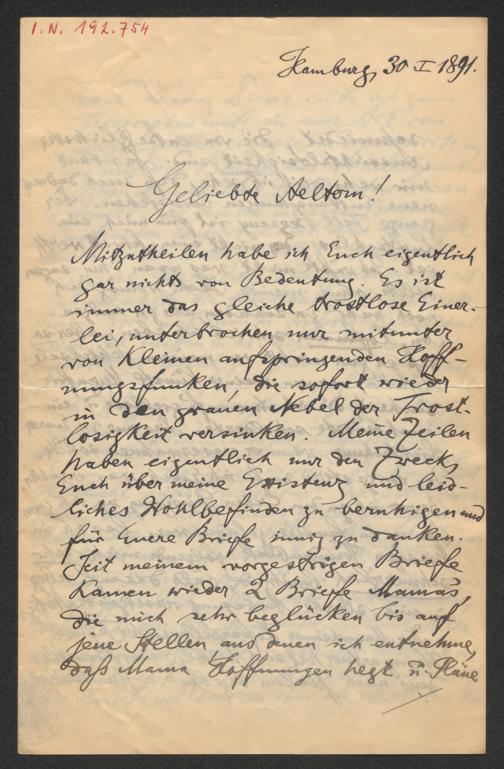 I.N. 192.754
Hamburg, 30 I 1891.
Geliebte Aeltern!
Mitzutheilen habe ich Euch eigentlich
gar nichts von Bedeutung. Es ist
immer das gleiche trostlose Einer-
lei, unterbrochen nur mitunter
von kleinen aufspringenden Hoff-
nungsfunken, die sofort wieder
in den grauen Nebel der Trost-
losigkeit versinken. Meine Zeilen
haben eigentlich nur den Zweck,
Euch über meine Existenz und leid-
liches Wohlbefinden zu beruhigen und
für Euere Briefe innig zu danken.
Seit meinem vorgestrigen Briefe
kamen wieder 2 Briefe Mamas,
die mich sehr beglücken bis auf
jene Stellen, aus denen ich entnehme,
daß Mama Hoffnungen hegt u. Pläne